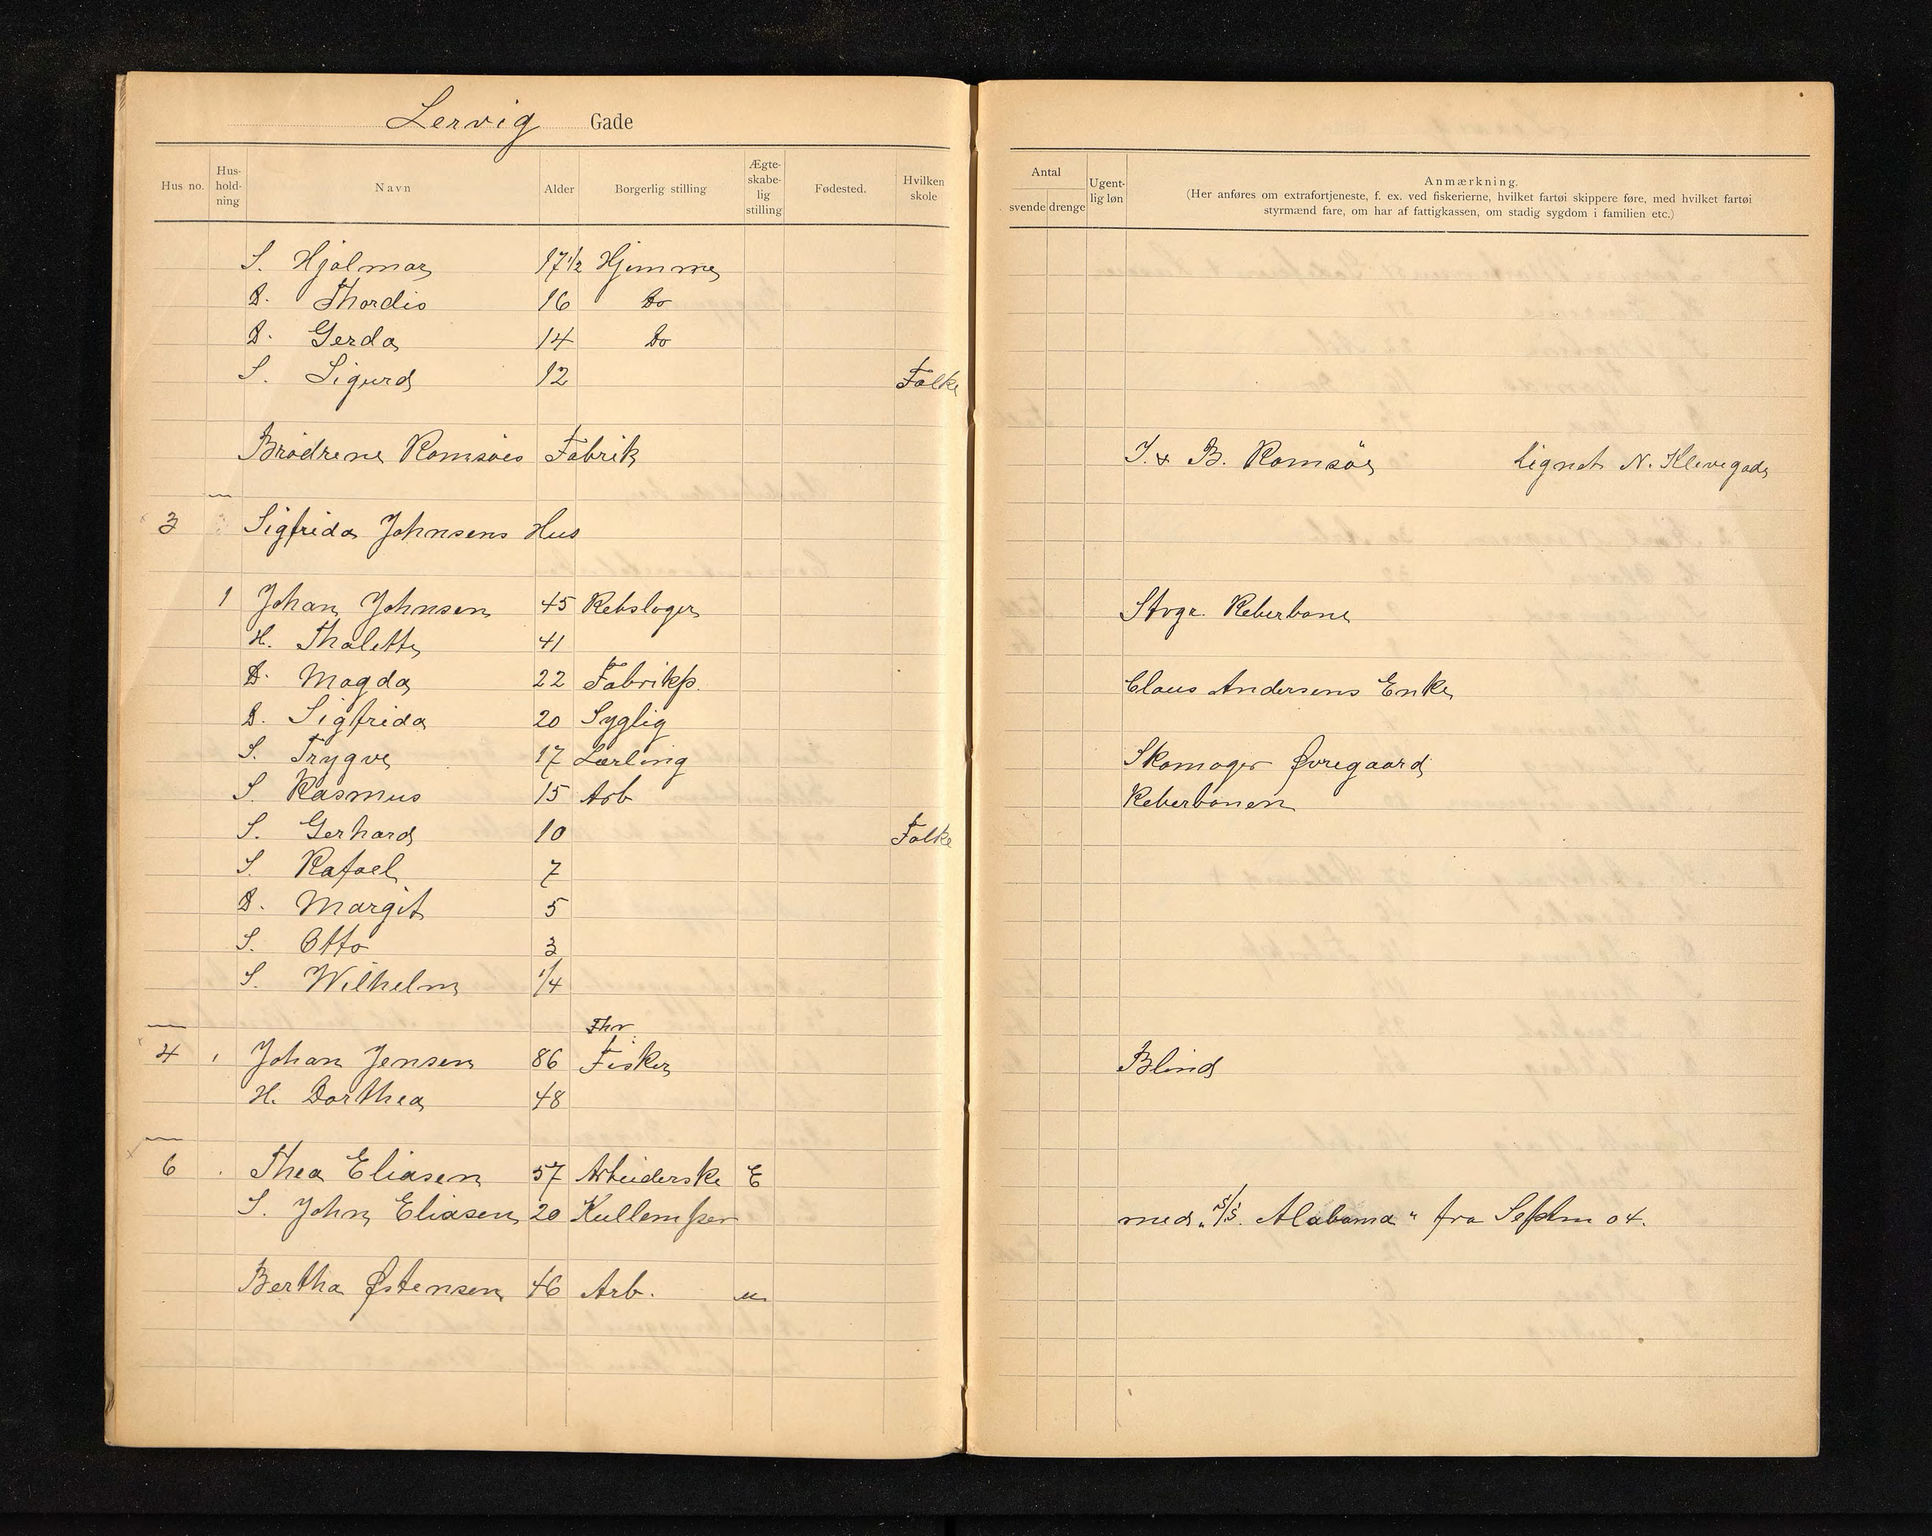 Lervig Gade
Hus no. Hus-hold-ning Navn Alder Borgerlig stilling Ægte-skabe-lig stilling Fødested. Hvilken skole
Antal svende drenge Ugent-lig løn Anmærkning.
(Her anføres om extrafortjeneste, f. ex. ved fiskerierne, hvilket fartøi skippere føre, med hvilket fartøi
styrmænd fare, om har af fattigkassen, om stadig sygdom i familien etc.)
S. Hjalmar 17 1/2 Hjemme
D. Thordis 16 Do
D. Gerda 14 Do
S. Sigurd 12 Folke
Brødrene Romsøes Fabrik J. & B. Romsøe Lignet N. Klevegade
3 Sigfrida Johnsens Hus
1 Johan Johnsen 45 Rebslager Stvgr. Reberbane
H. Thalette 41
D. Magda 22 Fabrikp. Claus Andersens Enke
D. Sigfrida 20 Syglig
S. Trygve 17 Lærling Skomager Øvregaard
S. Rasmus 15 Arb Reberbanen
S. Gerhard 10 Folke
S. Rafael 7
D. Margit 5
S. Otto 3
S. Wilhelm 1/4
Fhv.
4 1 Johan Jensen 86 Fisker Blind
H. Dorthea 48
6 Thea Eliasen 57 Arbeiderske E
S. John Eliasen 20 Kullemper med "S/S. Alabama" fra Septm 04.
Bertha Østensen 46 Arb. "